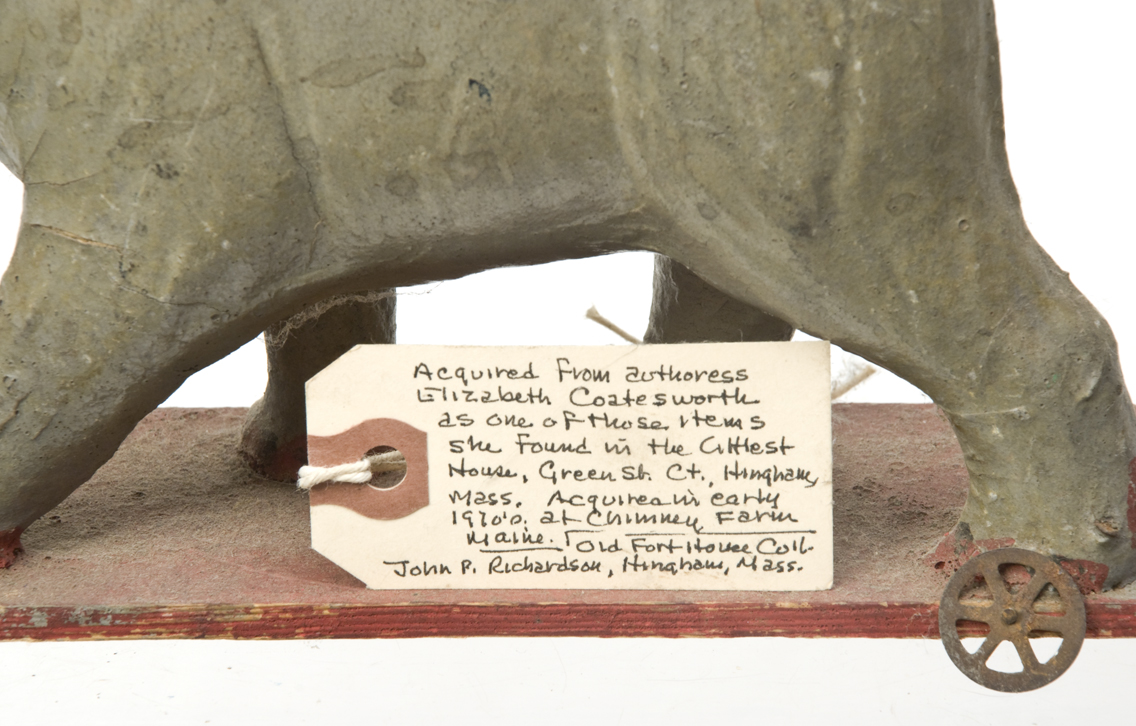 Acquired From authoress
Elizabeth Coatesworth
as one of those items
she Found in the Littlest
House, Green St. Ct., Hingham,
Mass. Acquired in early
1970's. at Chimney Farm
Maine. Old Fort House Coll.
John P. Richardson, Hingham, Mass.